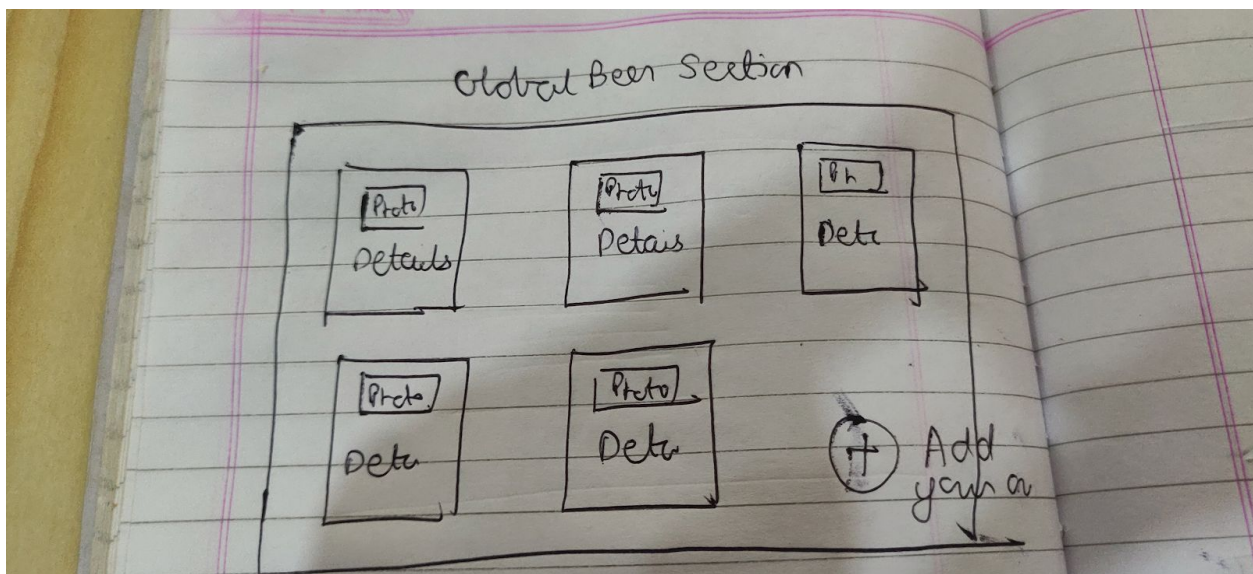 Global Beer Section
Proto
Details
Proto
Detais
Ph
Deta
Proto
Deta
Proto
Deta
+ Add
your